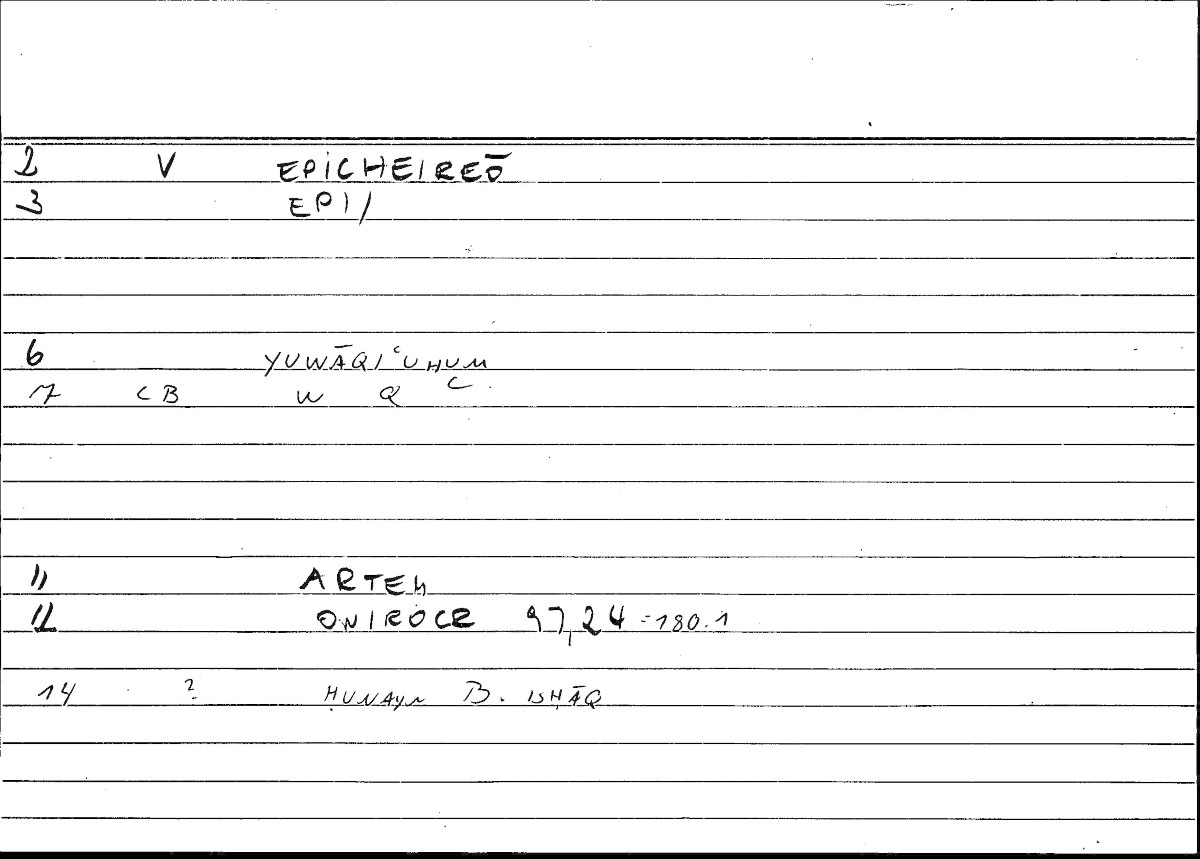 2 V EPICHEIREŌ
3 EPI/
6 YUWĀQIʿUHUM
7 CB W Q ʿ.
11 ARTEM
12 ONIROCR 97,24 = 180.1
14 ? ḤUNAYN B. ISḤĀQ